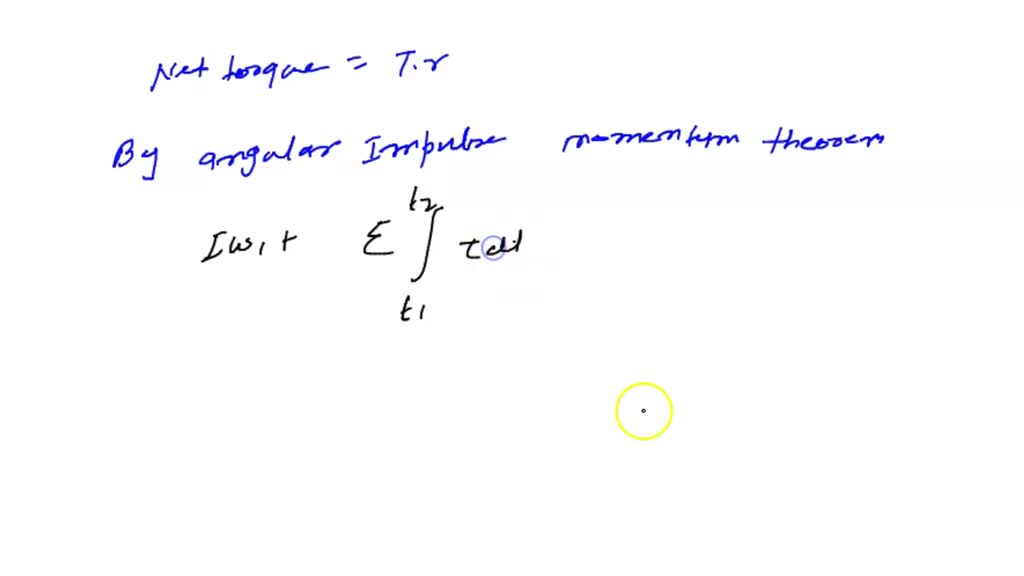 Net torque = T.r
By angular Impulse momentum theorem
Iω₁ + Σ∫ₜ₁ᵗ² τdt